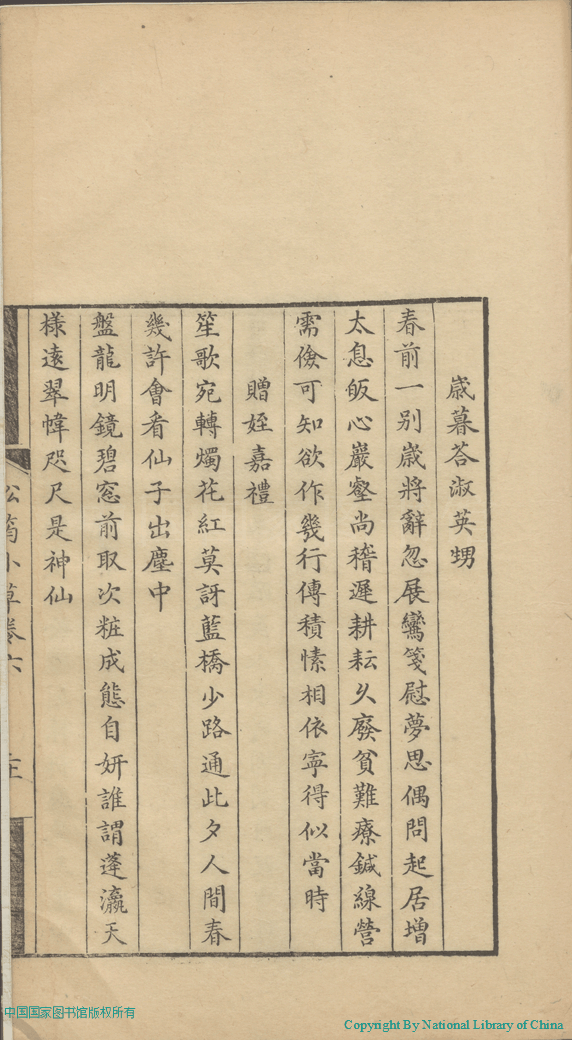 歲暮荅淑英甥
春前一别歲將辭忽展鸞箋慰夢思偶問起居增
太息皈心巖壑尚稽遲耕耘久廢貧難療鍼線營
需儉可知欲作幾行傳積愫相依寧得似當時
贈姪嘉禮
笙歌宛轉燭花紅莫訝藍橋少路通此夕人間春
幾許會看仙子出塵中
盤龍明鏡碧窓前取次粧成態自妍誰謂蓬瀛天
様遠翠幃咫尺是神仙
小草卷六
中国国家图书馆版权所有
Copyright By National Library of China